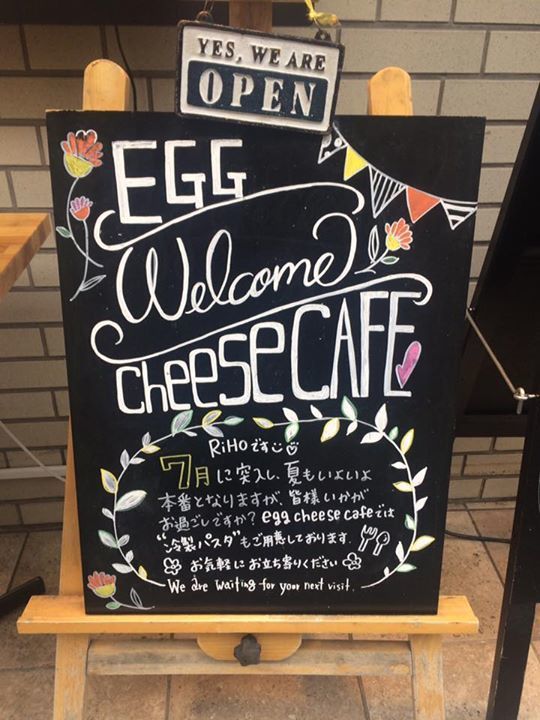 YES, WE ARE
OPEN
EGG
Welcome
cheese CAFE
RiHOです
7月に突入し、夏もいよいよ
本番となりますが、皆様いかが
お過ごしですか？egg cheese cafeでは
“冷製パスタ”もご用意しております。
お気軽にお立ち寄りください
We are waiting for your next visit.